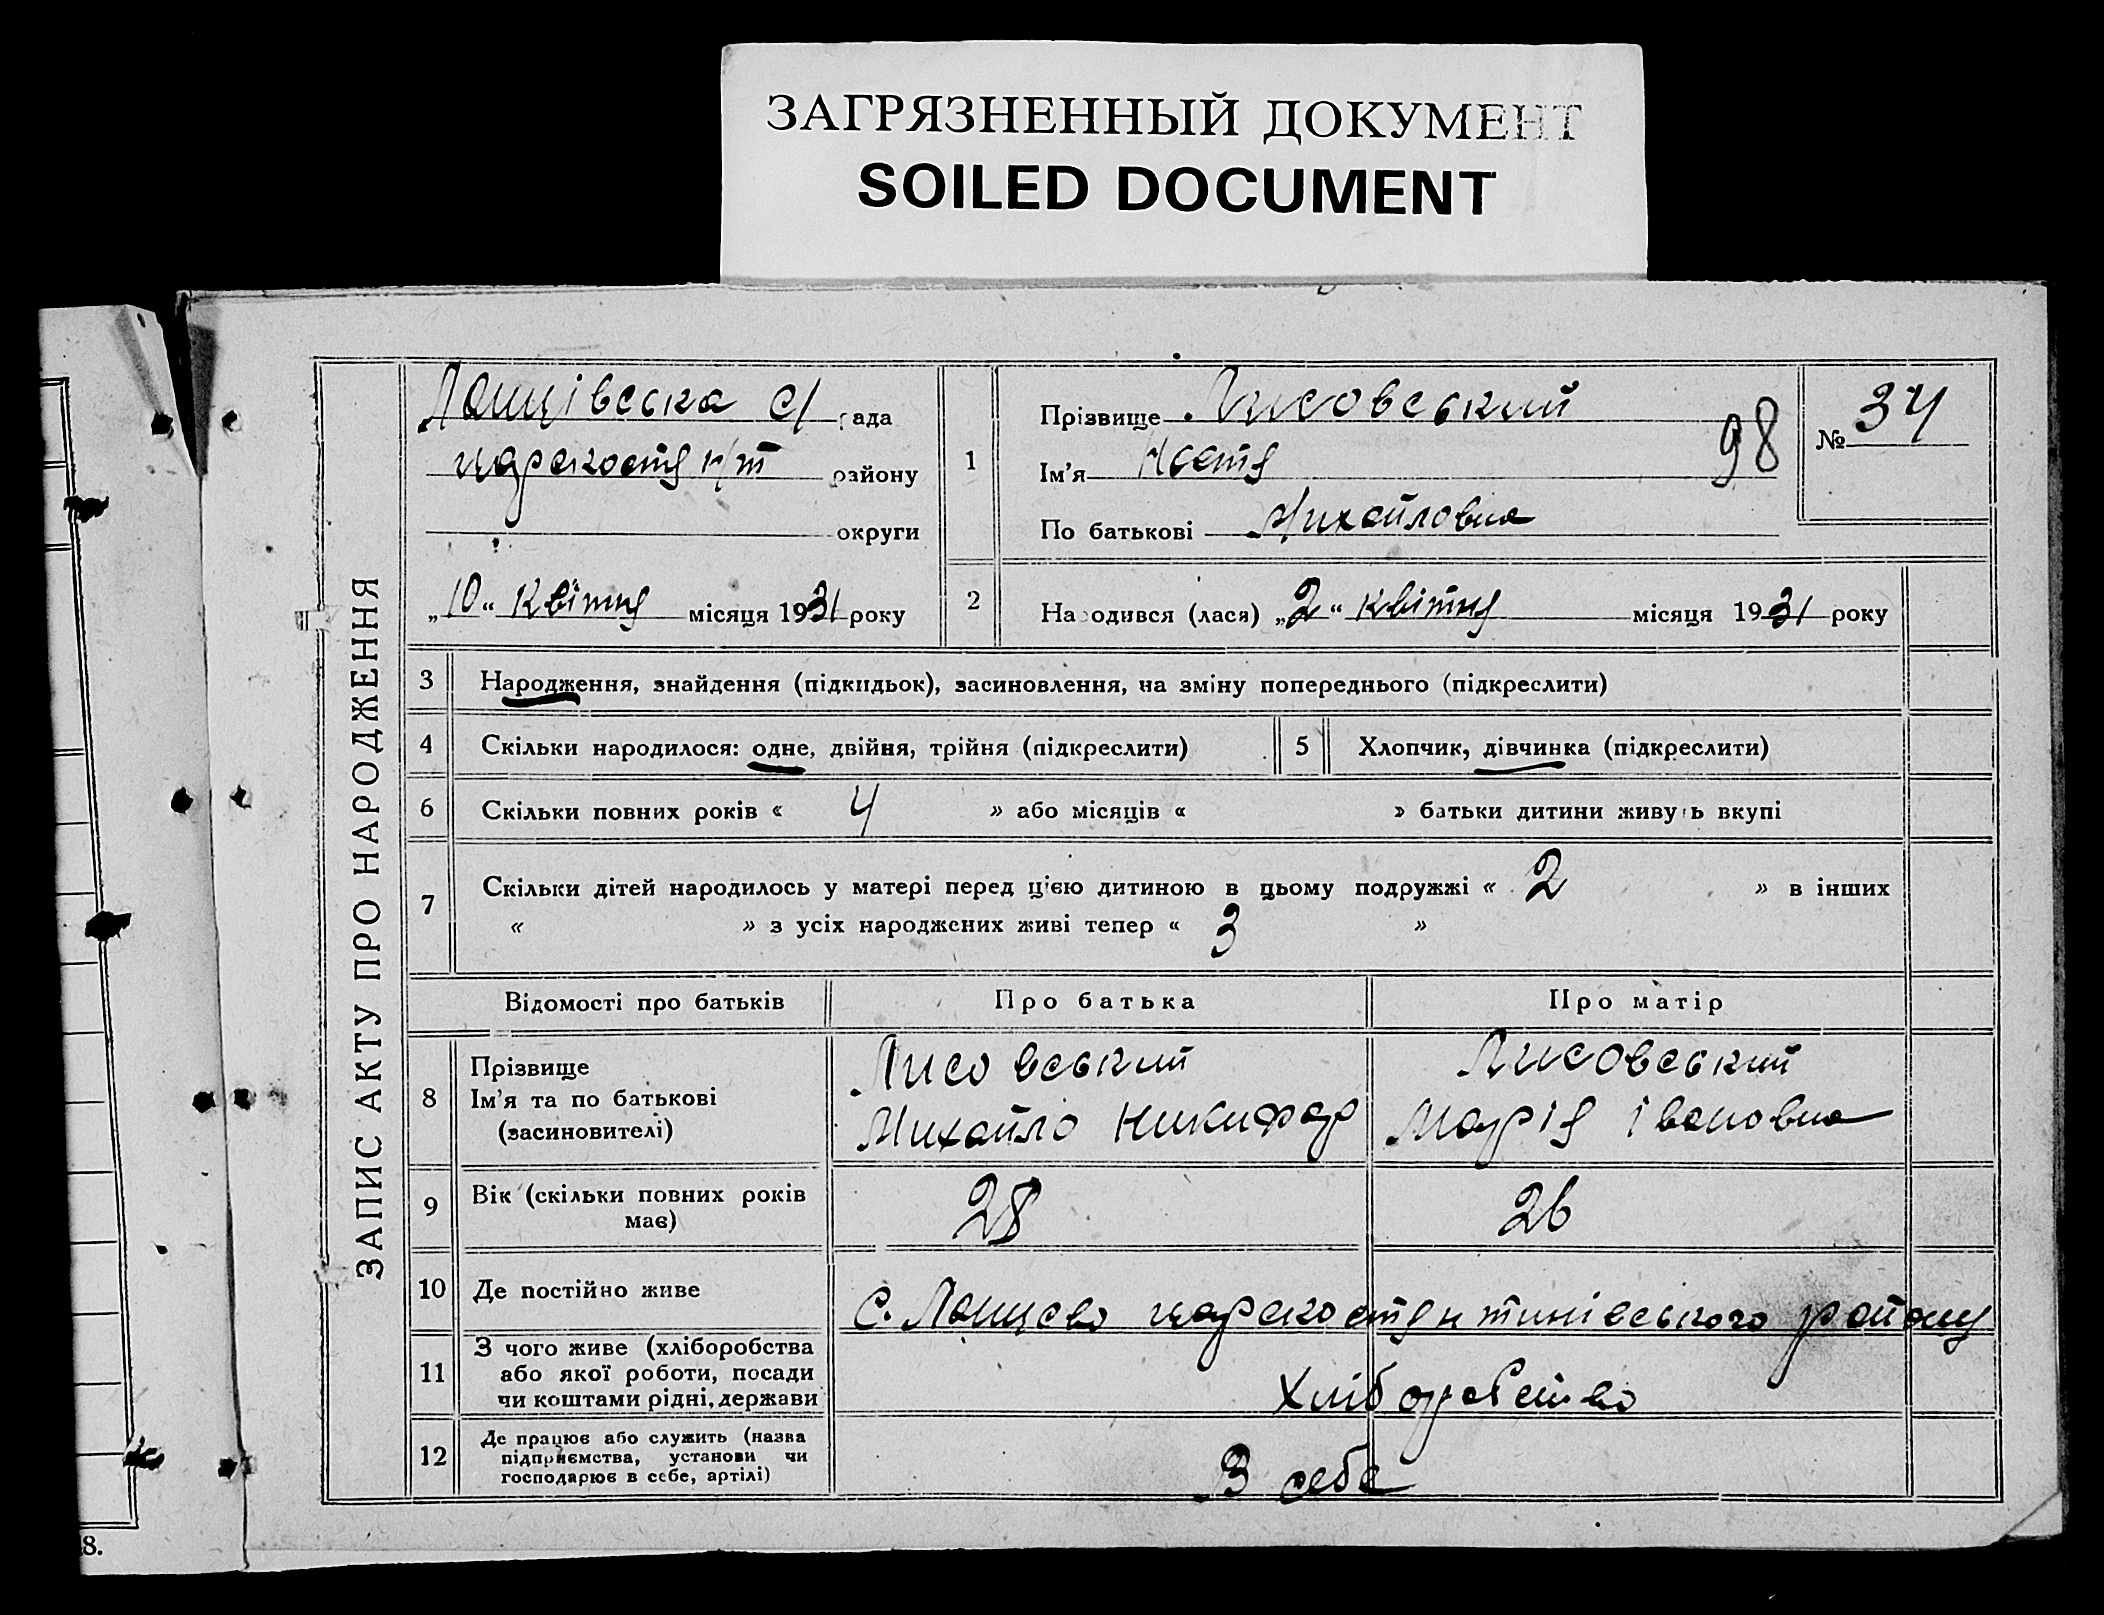 ЗАГРЯЗНЕННЫЙ ДОКУМЕНТ
SOILED DOCUMENT
ЗАПИС АКТУ ПРО НАРОДЖЕННЯ
Ланцівська с/ рада
району
округи
„10“ квітня місяця 1931 року
1
Прізвище Лисовський
Ім'я Настя
98
По батькові Михайловна
№ 34
2
Народився (лася) „2“ квітня місяця 1931 року
3 Народження, знайдення (підкидьок), засиновлення, на зміну попереднього (підкреслити)
4 Скільки народилося: одне, двійня, трійня (підкреслити)
5 Хлопчик, дівчинка (підкреслити)
6 Скільки повних років « 4 » або місяців « » батьки дитини живуть вкупі
7 Скільки дітей народилось у матері перед цією дитиною в цьому подружжі « 2 » в інших
« » з усіх народжених живі тепер « 3 »
Відомості про батьків Про батька Про матір
8 Прізвище
Ім'я та по батькові
(засиновителі)
Лисовський
Михайло Никифар
Лисовський
Марія Івановна
9 Вік (скільки повних років
має)
28 26
10 Де постійно живе
с. району
11 З чого живе (хліборобства
або якої роботи, посади
чи коштами рідні, держави
Хліборобство
12 Де працює або служить (назва
підприємства, установи чи
господарює в себе, артілі)
В себе
8.